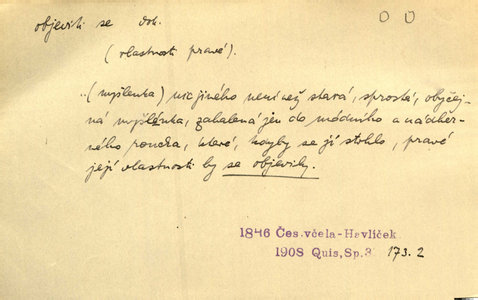 objeviti se dok.
(vlastnosti pravé).
(myšlenka) nic jiného není než stará, sprostá, obyčej-
ná myšlénka, zahalená jen do módního a nádher-
ného roucha, které, kdyby se jí strhlo, pravé
její vlastnosti by se objevily.
1846 Čes.včela-Havlíček
1908 Quis,Sp.3 173.2